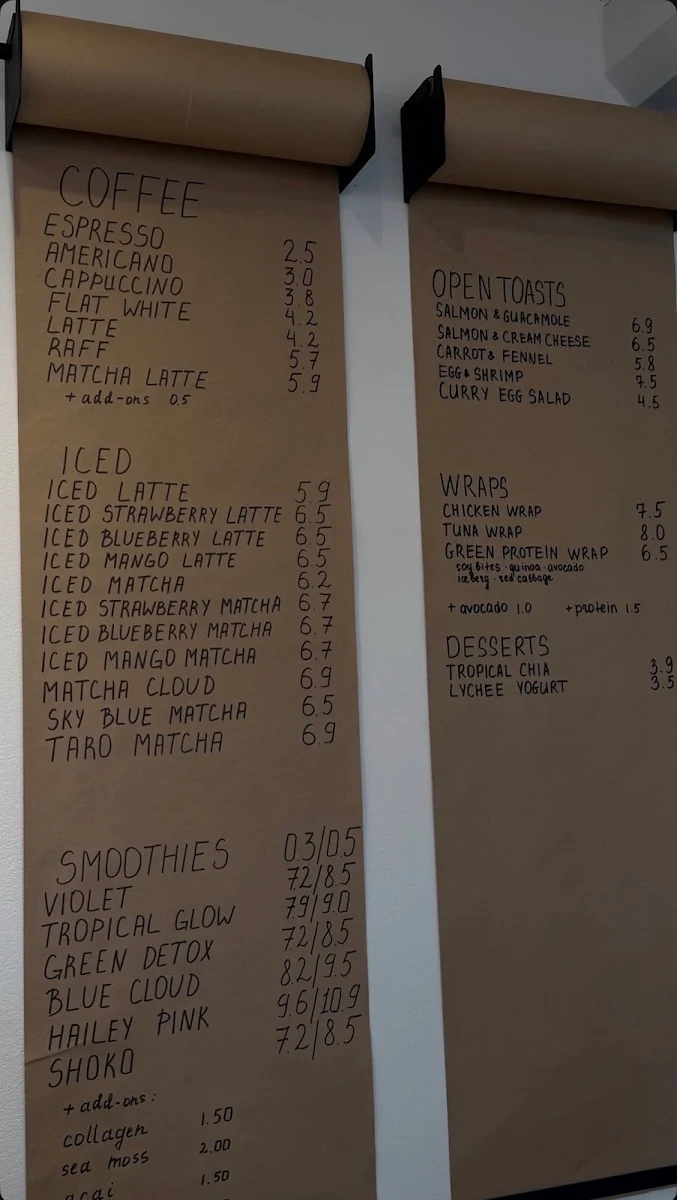 COFFEE
ESPRESSO 2.5
AMERICANO 3.0
CAPPUCCINO 3.8
FLAT WHITE 4.2
LATTE 4.2
RAFF 5.7
MATCHA LATTE 5.9
+ add-ons 0.5
ICED
ICED LATTE 5.9
ICED STRAWBERRY LATTE 6.5
ICED BLUEBERRY LATTE 6.5
ICED MANGO LATTE 6.5
ICED MATCHA 6.2
ICED STRAWBERRY MATCHA 6.7
ICED BLUEBERRY MATCHA 6.7
ICED MANGO MATCHA 6.7
MATCHA CLOUD 6.9
SKY BLUE MATCHA 6.5
TARO MATCHA 6.9
SMOOTHIES 0.3/0.5
VIOLET 7.2/8.5
TROPICAL GLOW 7.9/9.0
GREEN DETOX 7.2/8.5
BLUE CLOUD 8.2/9.5
HAILEY PINK 9.6/10.9
SHOKO 7.2/8.5
+ add-ons:
collagen 1.50
sea moss 2.00
acai 1.50
OPEN TOASTS
SALMON & GUACAMOLE 6.9
SALMON & CREAM CHEESE 6.5
CARROT & FENNEL 5.8
EGG & SHRIMP 7.5
CURRY EGG SALAD 4.5
WRAPS
CHICKEN WRAP 7.5
TUNA WRAP 8.0
GREEN PROTEIN WRAP 6.5
soy bites · quinoa · avocado
iceberg · red cabbage
+ avocado 1.0 + protein 1.5
DESSERTS
TROPICAL CHIA 3.9
LYCHEE YOGURT 3.5